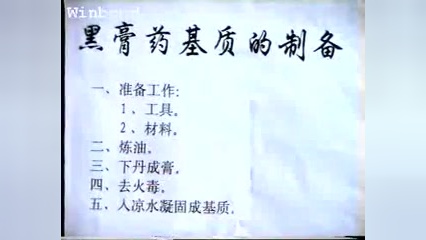 黑膏药基质的制备
一、准备工作:
1、工具。
2、材料。
二、炼油。
三、下丹成膏。
四、去火毒。
五、入凉水凝固成基质.